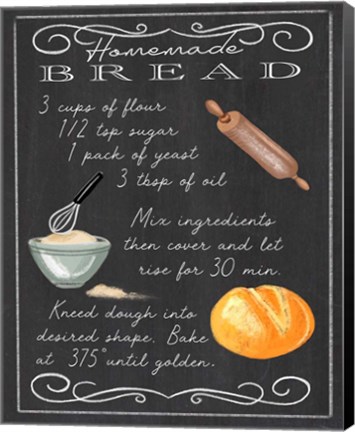 Homemade
BREAD
3 cups of flour
1/2 tsp sugar
1 pack of yeast
3 tbsp of oil
Mix ingredients
then cover and let
rise for 30 min.
Kneed dough into
desired shape. Bake
at 375° until golden.